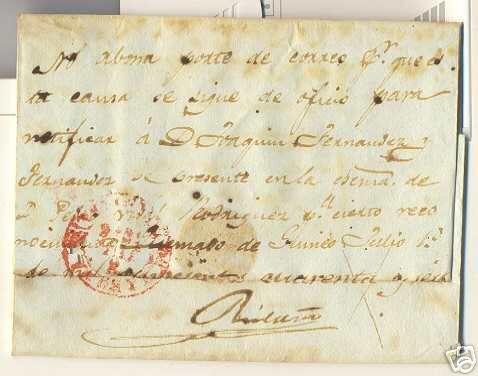 No abona porte de correo pr. que es
ta causa se sigue de oficio para
notificar á D. Joaquin Fernandez y
Fernandez se presente en la escma. de
D. Pedro Vidal Rodriguez pa. cierto reco
nocimiento de Guines Julio 1o.
de mil ochocientos cuarenta y seis